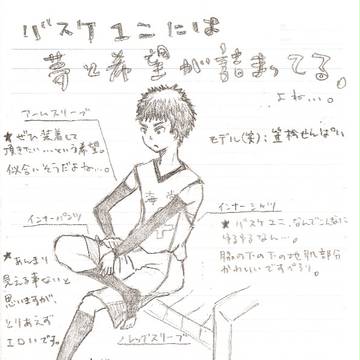 バスケユニには
夢と希望が詰まってる。
よね…。
アームスリーブ
★ぜひ装着して
頂きたい…という希望。
似合いそうだよね…。
モデル(笑):笠松せんぱい
インナーパンツ
インナーシャツ
★バスケユニ、なんでこんなに
ゆるゆるなん…。
脇の下の下の地肌部分
かわいいですぺろり。
★あんまり
見える事ないと
思いますが、
とりあえず
エロいです。
レッグスリーブ